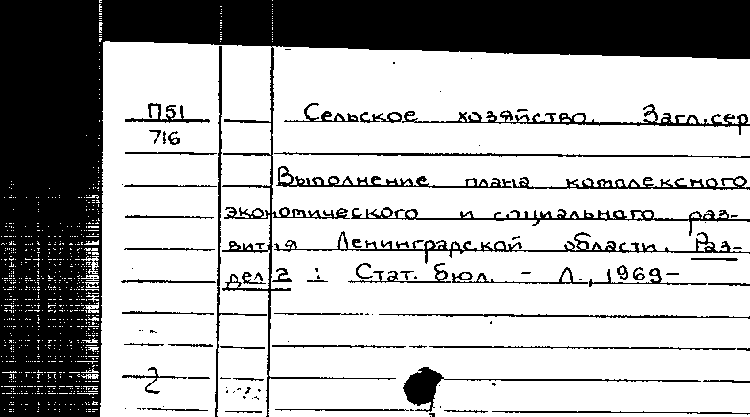 П51 Сельское хозяйство. Загл.сер
716
Выполнение плана комплексного
экономического и социального раз-
вития Ленинградской области. Раз-
дел 2 : Стат. бюл. - Л., 1969-
2